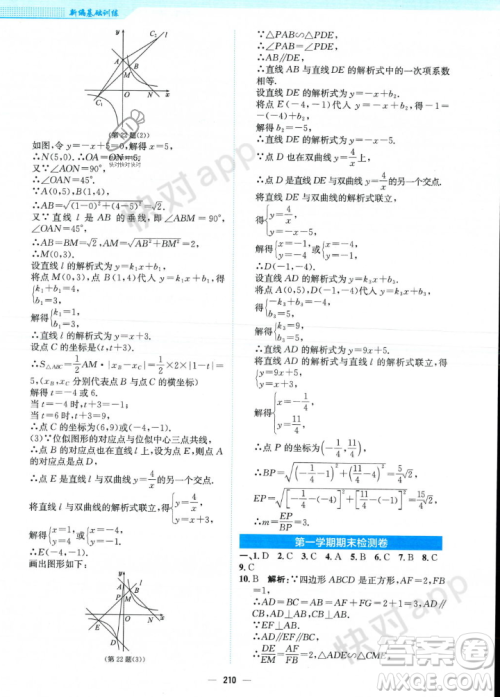 新编基础训练
(第22题(2))
如图,令y=-x+5=0,解得x=5,
∴N(5,0).∴OA=ON=5.
又∵∠AON=90°,
∴∠OAN=45°.
∵A(0,5),B(1,4),
∴AB=√(1-0)²+(4-5)²=√2.
又∵直线l是AB的垂线,即∠ABM=90°,
∠OAN=45°,
∴AB=BM=√2,AM=√AB²+BM²=2.
∴M(0,3).
设直线l的解析式为y=k₁x+b₁,
将点M(0,3),点B(1,4)代入y=k₁x+b₁,
得{k₁=1,
b₁=3,
∴直线l的解析式为y=x+3.
设点C的坐标是(t,t+3).
∴S△ABC=1/2AM·|xB-xC|=1/2×2×|1-t|=
5,(xB,xC分别代表点B与点C的横坐标)
解得t=-4或6.
当t=-4时,t+3=-1;
当t=6时,t+3=9.
∴点C的坐标为(6,9)或(-4,-1).
(3)∵位似图形的对应点与位似中心三点共线,
∴点B的对应点也在直线l上,不妨设为点E,
则点P的对应点为点D.
将直线l与双曲线的解析式联立,得{y=4/x,
y=x+3,
解得{x=1,
y=4
或{x=-4,
y=-1.
∴E(-4,-1).
画出图形如下:
(第22题(3))
∵△PAB∽△PDE,
∴∠PAB=∠PDE.
∴AB∥DE.
∴直线AB与直线DE的解析式中的一次项系数
相等.
设直线DE的解析式为y=-x+b₂.
将点E(-4,-1)代入y=-x+b₂,
解得b₂=-5.
∴直线DE的解析式为y=-x-5.
∵点D也在双曲线y=4/x上,
∴点D是直线DE与双曲线y=4/x的另一个交点,
将直线DE与双曲线的解析式联立,
得{y=4/x,
y=-x-5,
解得{x=-1,
y=-4
或{x=-4,
y=-1.
∴D(-1,-4).
设直线AD的解析式为y=k₃x+b₃.
将点A(0,5),D(-1,-4)代入y=k₃x+b₃,
解得{k₃=9,
b₃=5,
∴直线AD的解析式为y=9x+5.
将直线AD的解析式与直线l的解析式联立,得
{y=x+3,
y=9x+5,
解得{x=-1/4,
y=11/4.
∴点P的坐标为(-1/4,11/4).
∴BP=√(-1/4-1)²+(11/4-4)²=5/4√2,
EP=√[-1/4-(-4)]²+[11/4-(-1)]²=15/4√2.
∴m=EP/BP=3.
第一学期期末检测卷
一、1.D 2.C 3.C 4.B 5.A 6.B 7.B 8.C
9.C
10.B 解析:∵四边形ABCD是正方形,AF=1,
∴AB∥AD,AB=AD=AF+FD=1+2=3.
∴∠DFE=∠MAE,∠FDE=∠AME.
∴△DEF∽△MEA.
∴DE/EM=EF/AE=DF/AM=2.
210